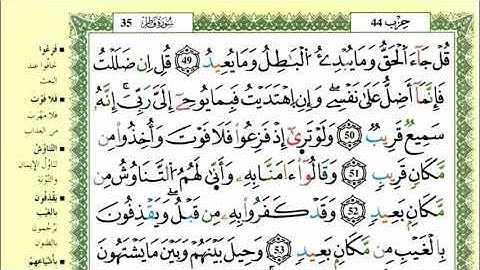 حزب 44
سورة فاطر
35
قُلْ جَآءَ ٱلْحَقُّ وَمَا يُبْدِئُ ٱلْبَٰطِلُ وَمَا يُعِيدُ 49 قُلْ إِن ضَلَلْتُ
فَإِنَّمَآ أَضِلُّ عَلَىٰ نَفْسِي وَإِنِ ٱهْتَدَيْتُ فَبِمَا يُوحِىٓ إِلَىَّ رَبِّىٓ إِنَّهُۥ
سَمِيعٌ قَرِيبٌ 50 وَلَوْ تَرَىٰٓ إِذْ فَزِعُوا۟ فَلَا فَوْتَ وَأُخِذُوا۟ مِن
مَّكَانٍ قَرِيبٍ 51 وَقَالُوٓا۟ ءَامَنَّا بِهِۦ وَأَنَّىٰ لَهُمُ ٱلتَّنَاوُشُ مِن
مَّكَانٍۭ بَعِيدٍ 52 وَقَدْ كَفَرُوا۟ بِهِۦ مِن قَبْلُ وَيَقْذِفُونَ
بِٱلْغَيْبِ مِن مَّكَانٍۭ بَعِيدٍ 53 وَحِيلَ بَيْنَهُمْ وَبَيْنَ مَا يَشْتَهُونَ
فزعوا
خافوا عند
البعث
فلا فوت
فلا مهرب
من العذاب
التناوش
تناول الإيمان
والتوبة
يقذفون
بالغيب
يرجمون
بالظنون
بأشياعهم